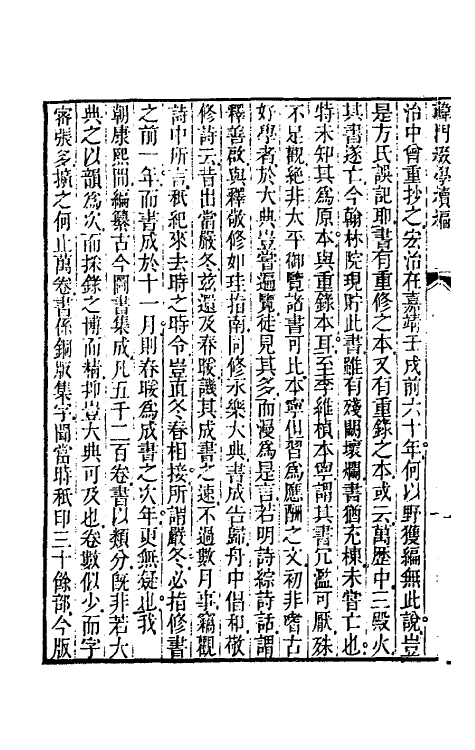 韓門綴學續編
治中曾重抄之宏治在嘉靖壬戌前六十年何以野獲編無此說豈
是方氏誤記耶書有重修之本又有重錄之本或云萬歷中三殿火
其書遂亡今翰林院現貯此書雖有殘闕壞爛書猶充棟未嘗亡也
特未知其爲原本與重錄本耳至李維楨本寧謂其書冗濫可厭殊
不足觀絶非太平御覽諸書可比本寧但習爲應酬之文初非嗜古
好學者於大典豈嘗遍覽徒見其多而漫爲是言若明詩綜詩話謂
釋善啟與釋敬修如珪指南同修永樂大典書成告歸舟中倡和敬
修詩云昔出當嚴冬茲還及春暖譏其成書之速不過數月事稱觀
詩中所言秪紀來去時之時令豈直冬春相接所謂嚴冬必指修書
之前一年而書成於十一月則春暖爲成書之次年更無疑也我
朝康熙間編纂古今圖書集成凡五千二百卷書以類分旣非若大
典之以韻爲次而採錄之博而精抑豈大典可及也卷數似少而字
密張多擴之何止萬卷書係銅版集字聞當時秪印三十餘部今版